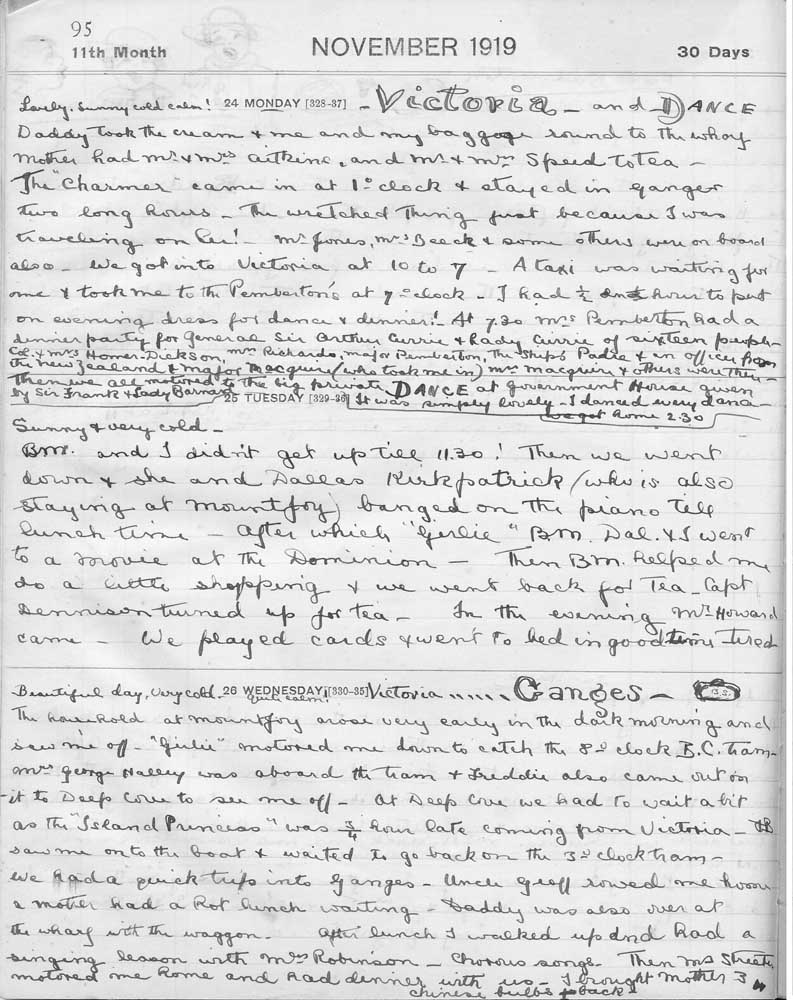 95
11th Month NOVEMBER 1919 30 Days
Lovely, sunny cold calm! 24 MONDAY [328-37] - Victoria - and DANCE
Daddy took the cream & me and my baggage round to the wharf
Mother had Mr & Mrs Aitkins, and Mr & Mrs Speed to tea -
The "Charmer" came in at 1 o'clock & stayed in Ganges
two long hours - The wretched Thing just because I was
traveling on her! - Mr Jones, Mrs Beech & some others were on board
also - We got into Victoria at 10 to 7 - A taxi was waiting for
me & took me to the Pemberton's at 7 o'clock - I had ½ hour to put
on evening dress for dance & dinner! - At 7.30 Mrs Pemberton had a
dinner party for General Sir Arthur Currie & Lady Currie of sixteen people -
Col. & Mrs Homer-Dickson, Mrs Richards, Major Pemberton, The Ship's Padre & an officer from
the New Zealand & Major Macguire (who took me in) Mrs Macguire & others were there -
Then we all motored to the big private DANCE at Government House given
by Sir Frank & Lady Barnard 25 TUESDAY [329-36] It was simply lovely - I danced every dance -
we got home 2.30
Sunny & very cold -
B.M. and I didn't get up till 11.30! Then we went
down & she and Dallas Kirkpatrick (who is also
staying at Mountjoy) banged on the piano till
lunch time - After which "Girlie" B.M. Dal. & I went
to a movie at the Dominion - Then B.M. helped me
do a little shopping & we went back for Tea - Capt
Dennison turned up for tea - In the evening Mr Howard
came - We played cards & went to bed in good time tired
Beautiful day, very cold. 26 WEDNESDAY [330-35] Victoria ...... Ganges - B.S.
quite calm!
The household at Mountjoy arose very early in the dark morning and
saw me off - "Girlie" motored me down to catch the 8 o'clock B.C. tram -
Mrs George Halley was aboard the tram & Freddie also came out on
it to Deep Cove to see me off - At Deep Cove we had to wait a bit
as the "Island Princess" was ¾ hour late coming from Victoria -
saw me onto the boat & waited to go back on the 3 o'clock tram -
We had a quick trip into Ganges - Uncle Geoff rowed me home
& Mother had a hot lunch waiting - Daddy was also over at
the wharf with the waggon. After lunch I walked up and had a
singing lesson with Mrs Robinson - Chorous songs. Then Mrs Streeter
motored me home and had dinner with us - I brought Mother 3
chinese bulbs back!